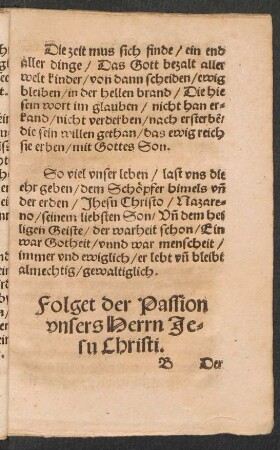 Die zeit mus sich finde / ein end
aller dinge / Das Gott bezalt aller
welt kinder / von dann scheiden / ewig
bleiben / in der hellen brand / Die hie
sein wort im glauben / nicht han er-
kand / nicht verderben / nach ersterbē
die sein willen gethan / das ewig reich
sie erben / mit Gottes Son.
So viel vnser leben / last vns die
ehr geben / dem Schöpfer himels vñ
der erden / Jhesu Christo / Nazare-
no / seinem liebsten Son / Vñ dem hei
ligen Geiste / der warheit schon / Ein
war Gotheit / vnnd war menscheit /
immer vnd ewiglich / er lebt vñ bleibt
almechtig / gewaltiglich.
Folget der Passion
vnsers Herrn Je-
su Christi.
B Der